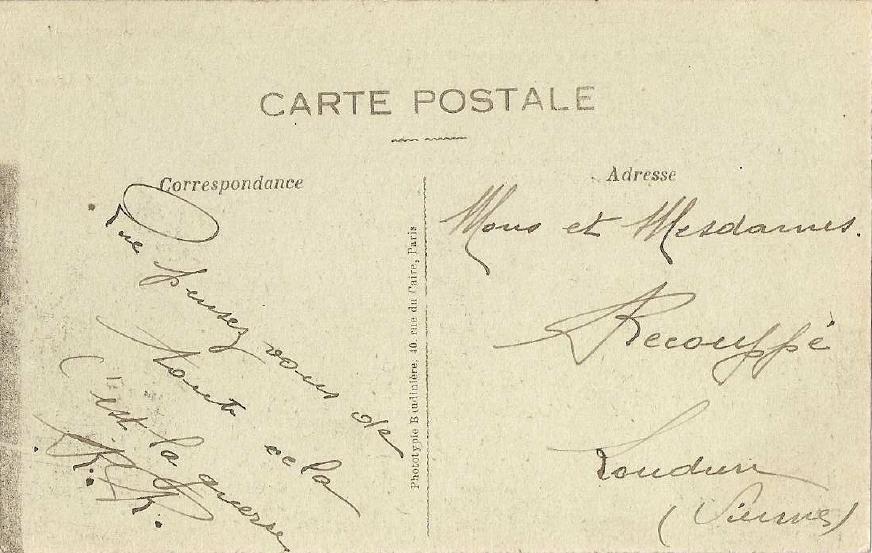 CARTE POSTALE
Correspondance
Que pensez vous de
toute cela
C'est la guerre
R. R.
Phototypie Baudinière, 40, rue du Caire, Paris
Adresse
Mons et Mesdames.
Recouppé
Loudun
(Vienne)